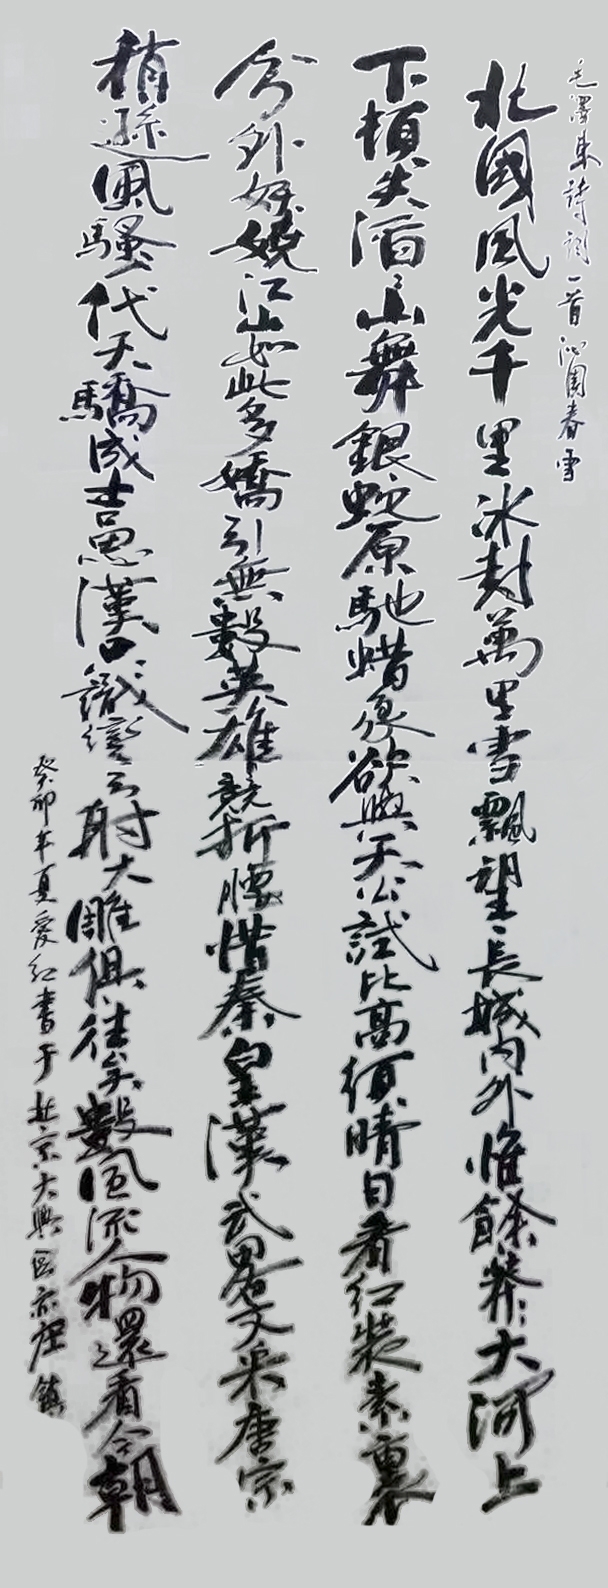 毛澤東詩詞一首沁園春雪
北國風光千里冰封萬里雪飄望長城内外惟餘莽莽大河上
下頓失滔滔山舞銀蛇原馳蜡象欲與天公試比高須晴日看紅裝素裹
分外妖嬈江山如此多嬌引無數英雄競折腰惜秦皇漢武畧文采唐宗
稍遜風騷一代天驕成吉思漢只識彎弓射大雕俱往矣數風流人物還看今朝
癸卯年夏愛紅書于北京大興區亦莊鎮